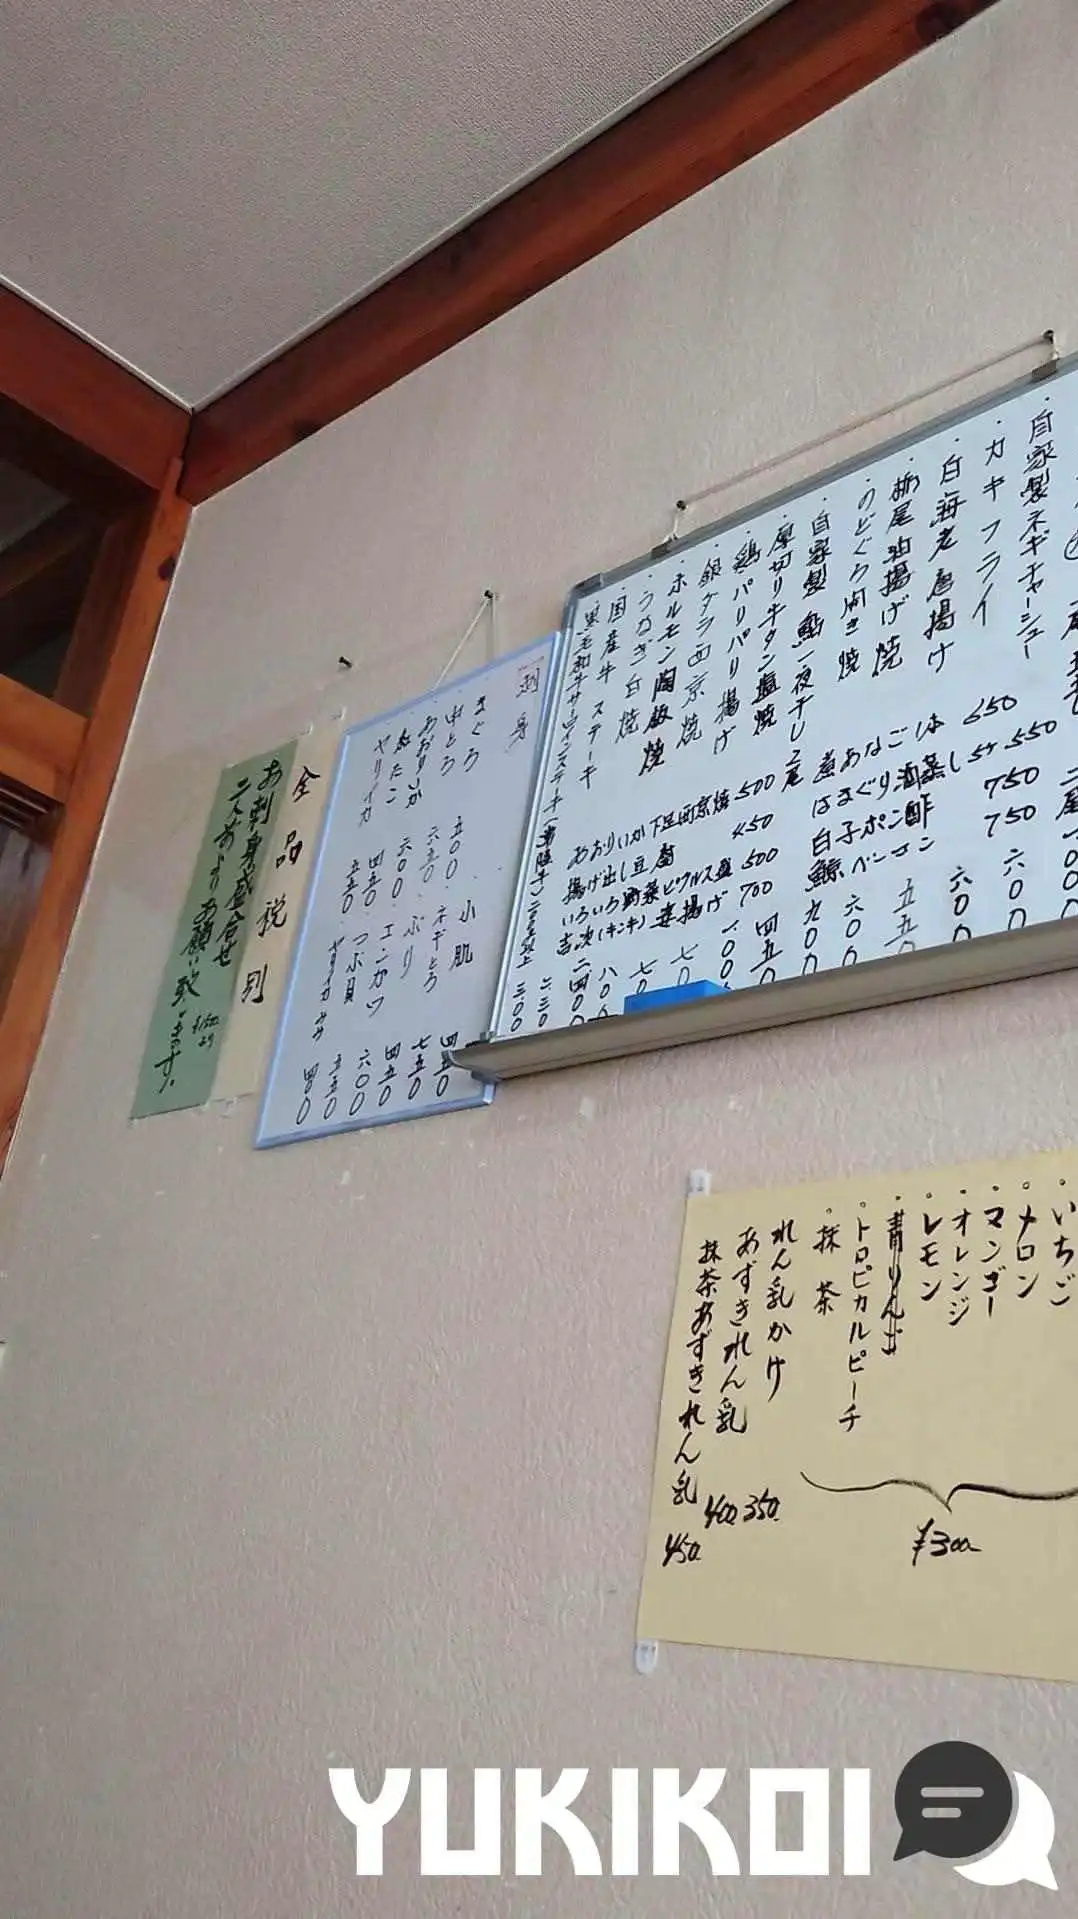 自家製ネギチャーシュー
カキフライ
白海老唐揚げ
栃尾油揚げ焼
のどぐろ開き焼
自家製鮎一夜干し 2尾
厚切り牛タン塩焼
鶏パリパリ揚げ
銀ダラ西京焼
ホルモン陶板焼
うなぎ白焼
国産牛ステーキ
黒毛和牛サーロインステーキ
煮あなごしは 650
はまぐり酒蒸し 5ケ 550
白子ポン酢 750
鯨ベーコン 750
あおりいか下足西京焼 500
揚げ出し豆腐 450
いろいろ野菜ピクルス盛 500
吉次(キンキ)姿揚げ 700
刺身
まぐろ 五〇〇
中とろ
あおりいか 六五〇
六〇〇
ヤリイカ 五五〇
小肌 四五〇
ネギとろ 七五〇
ぶり 四五〇
エンガワ 六〇〇
つぶ貝 五五〇
四〇〇
全品税別
お刺身盛合せ
二人前よりお願い致します。
いちご
メロン
マンゴー
オレンジ
レモン
青りんご
トロピカルピーチ
抹茶
¥300-
れん乳かけ 350.
あずきれん乳 400.
抹茶あずきれん乳 450.
YUKIKOI